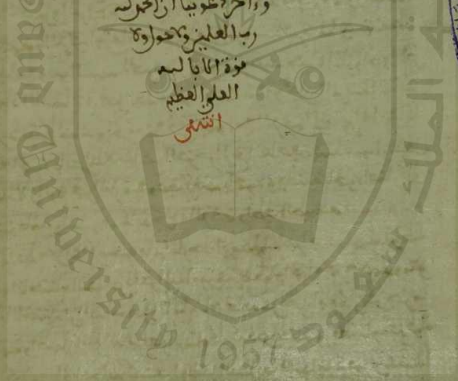 وءاخر دعوينا أن الحمد لله
رب العلمين ولا حول ولا
قوة إلا بالله
العلي العظيم
انتهى
University
1957